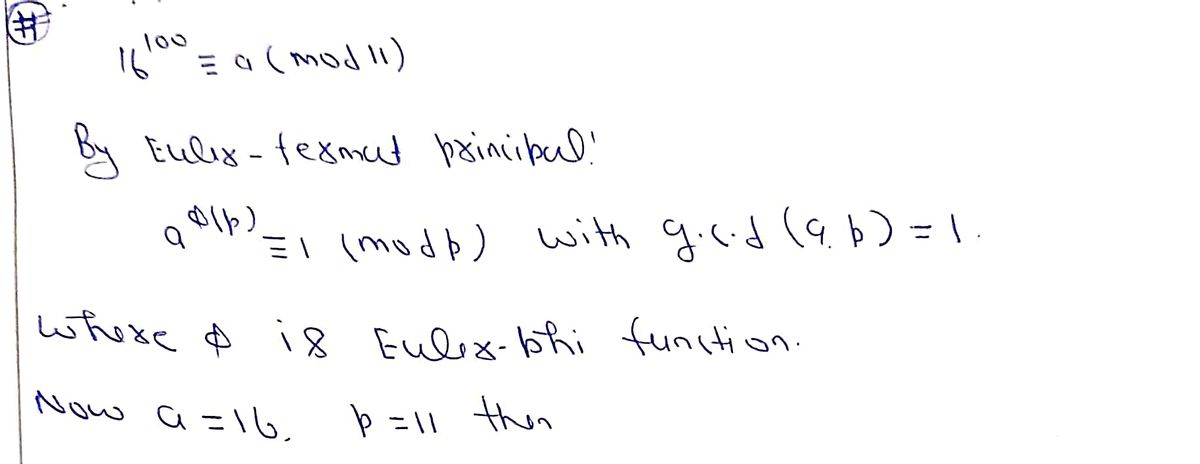 #
16^100 ≡ a (mod 11)
By Euler-fermat principal:
a^ϕ(p) ≡ 1 (mod p) with g.c.d (a, p) = 1.
where ϕ is Euler-phi function.
Now a = 16, p = 11 then